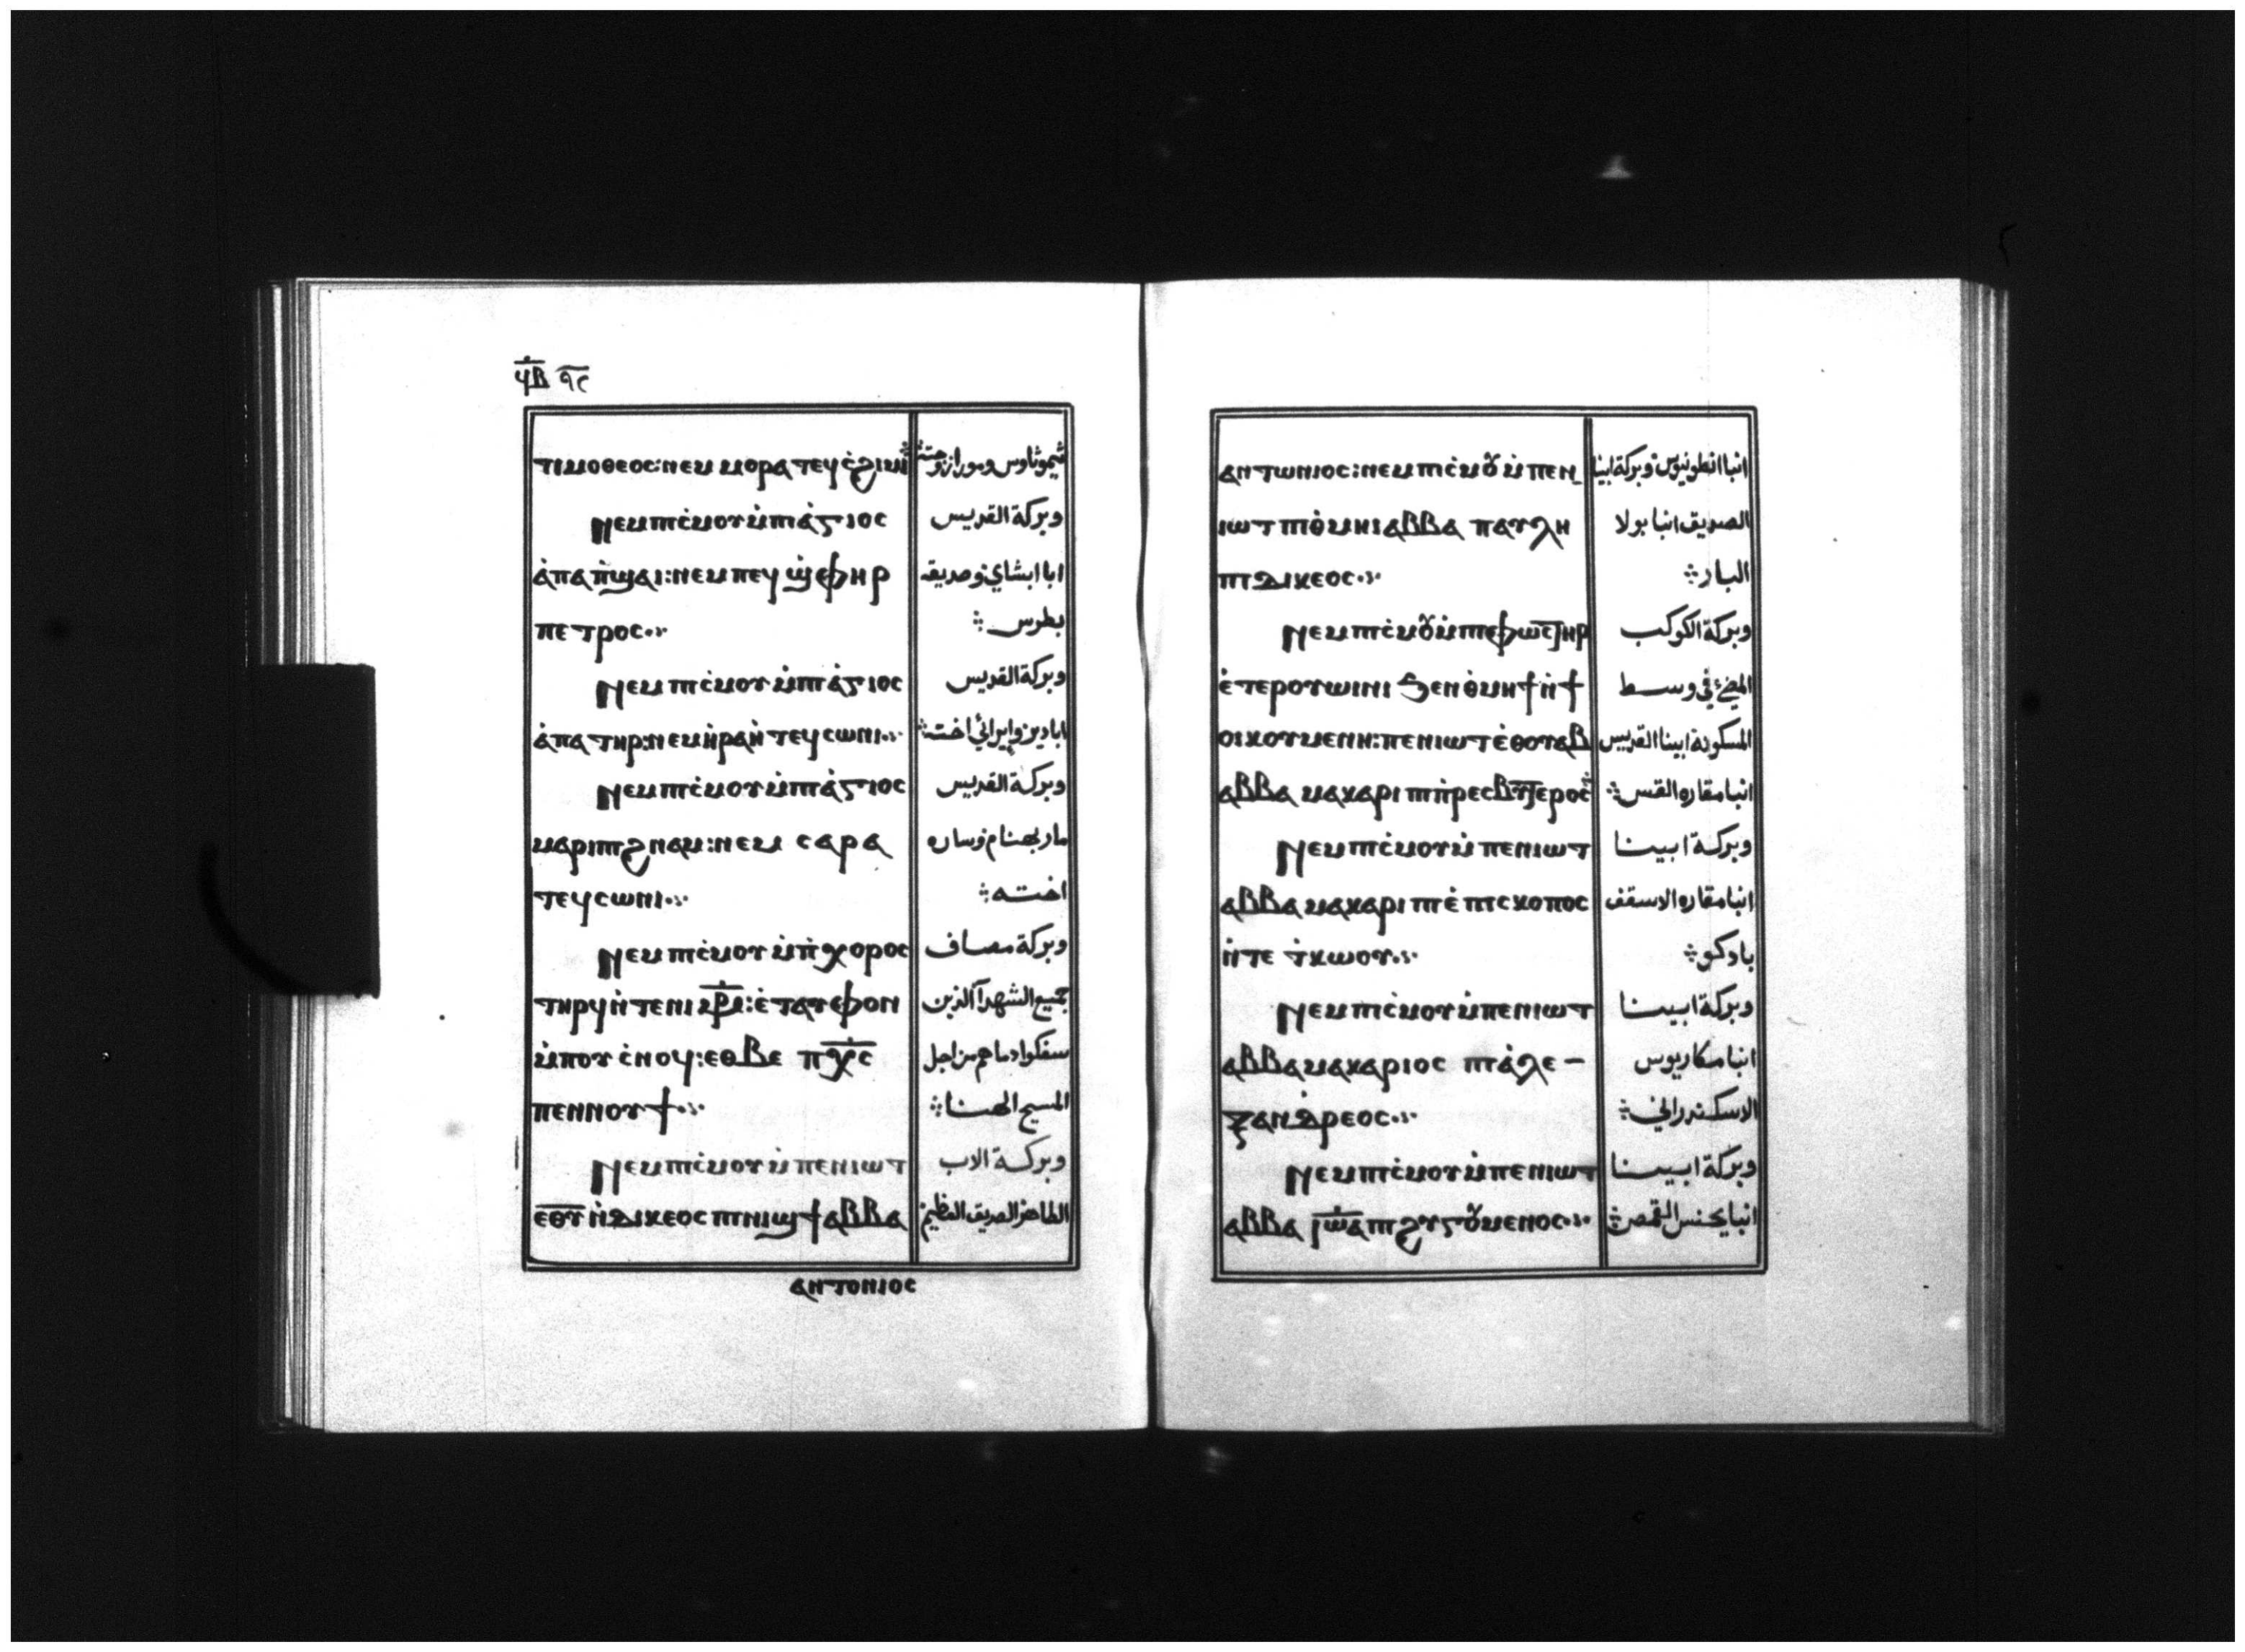 ϥⲃ ٩٢
ⲧⲓⲙⲟⲑⲉⲟⲥ: ⲛⲉⲙ ⲙⲟⲣⲁ ⲧⲉϥⲥ̇ϩⲓⲙⲓ
تيموثاوس ومورا زوجته
Ⲛⲉⲙ ⲡⲓⲥ̇ⲙⲟⲩ ⲙ̇ⲡⲓⲁ̇ⲅⲓⲟⲥ
وبركة القديس
ⲁ̇ⲡⲁ ⲡ̇ϣⲁⲓ: ⲛⲉⲙ ⲡⲉϥϣ̇ⲫⲏⲣ
ابا ابشاي وصديقه
ⲡⲉⲧⲣⲟⲥ
بطرس
Ⲛⲉⲙ ⲡⲓⲥ̇ⲙⲟⲩ ⲙ̇ⲡⲓⲁ̇ⲅⲓⲟⲥ
وبركة القديس
ⲁ̇ⲡⲁ ⲧⲏⲣ: ⲛⲉⲙ ⲏ̇ⲣⲁⲏ̇ ⲧⲉϥⲥⲱⲛⲓ
ابادير وايرائي اخته
Ⲛⲉⲙ ⲡⲓⲥ̇ⲙⲟⲩ ⲙ̇ⲡⲓⲁ̇ⲅⲓⲟⲥ
وبركة القديس
ⲙⲁⲣⲓⲡϩⲛⲁⲙ: ⲛⲉⲙ ⲥⲁⲣⲁ
مار بهنام وساره
ⲧⲉϥⲥⲱⲛⲓ
اخته
Ⲛⲉⲙ ⲡⲓⲥ̇ⲙⲟⲩ ⲙ̇ⲡ̇ⲭⲟⲣⲟⲥ
وبركة مصاف
ⲧⲏⲣϥ ⲛ̇ⲧⲉ ⲛⲓ ⲙ̅ⲣ̅: ⲉ̇ⲧⲁⲩⲫⲟⲛ
جميع الشهدآ الذين
ⲙ̇ⲡⲟⲩ ⲥ̇ⲛⲟϥ: ⲉⲑⲃⲉ ⲡ̅ⲭ̅ⲥ̅
سفكوا دماهم من اجل
ⲡⲉⲛⲛⲟⲩϯ
المسيح الهنا
Ⲛⲉⲙ ⲡⲓⲥ̇ⲙⲟⲩ ⲙ̇ⲡⲉⲛⲓⲱⲧ
وبركة الاب
ⲉ̅ⲑ̅ⲩ̅ ⲛ̇ⲇⲓⲕⲉⲟⲥ ⲡⲓⲛⲓϣϯ ⲁⲃⲃⲁ
الطاهر الصديق العظيم
ⲁⲛⲧⲟⲛⲓⲟⲥ
ⲁⲛⲧⲱⲛⲓⲟⲥ: ⲛⲉⲙ ⲡⲓⲥ̇ⲙⲟⲩ ⲙ̇ⲡⲉⲛ
انبا انطونيوس وبركة ابينا
ⲓⲱⲧ ⲡⲓⲑ̇ⲙⲏⲓ ⲁⲃⲃⲁ ⲡⲁⲩⲗⲏ
الصديق انبا بولا
ⲡⲓⲇⲓⲕⲉⲟⲥ
البار
Ⲛⲉⲙ ⲡⲓⲥ̇ⲙⲟⲩ ⲙ̇ⲡⲓⲫⲱⲥⲧⲏⲣ
وبركة الكوكب
ⲉ̇ⲧⲉⲣⲟⲩⲱⲓⲛⲓ ϧⲉⲛ ⲑ̇ⲙⲏϯ ⲛ̇ϯ
المضئ في وسط
ⲟⲓⲕⲟⲩⲙⲉⲛⲏ: ⲡⲉⲛⲓⲱⲧ ⲉ̇ⲑⲟⲩⲁⲃ
المسكونة ابينا القديس
ⲁⲃⲃⲁ ⲙⲁⲕⲁⲣⲓ ⲡⲓⲡ̇ⲣⲉⲥⲃⲩⲧⲉⲣⲟⲥ
انبا مقاره القس
Ⲛⲉⲙ ⲡⲓⲥ̇ⲙⲟⲩ ⲙ̇ⲡⲉⲛⲓⲱⲧ
وبركة ابينا
ⲁⲃⲃⲁ ⲙⲁⲕⲁⲣⲓ ⲡⲓⲉ̇ⲡⲓⲥⲕⲟⲡⲟⲥ
انبا مقاره الاسقف
ⲛ̇ⲧⲉ ⲧ̇ⲕⲱⲟⲩ
بادكو
Ⲛⲉⲙ ⲡⲓⲥ̇ⲙⲟⲩ ⲙ̇ⲡⲉⲛⲓⲱⲧ
وبركة ابينا
ⲁⲃⲃⲁ ⲙⲁⲕⲁⲣⲓⲟⲥ ⲡⲓⲁ̇ⲗⲉ-
انبا مكاريوس
ⲝⲁⲛⲇ̇ⲣⲉⲟⲥ
الاسكندراني
Ⲛⲉⲙ ⲡⲓⲥ̇ⲙⲟⲩ ⲙ̇ⲡⲉⲛⲓⲱⲧ
وبركة ابينا
ⲁⲃⲃⲁ ⲓ̅ⲱ̅ⲁ̅ ⲡⲓϩⲩⲅⲟⲩⲙⲉⲛⲟⲥ
انبا يحنس القمص